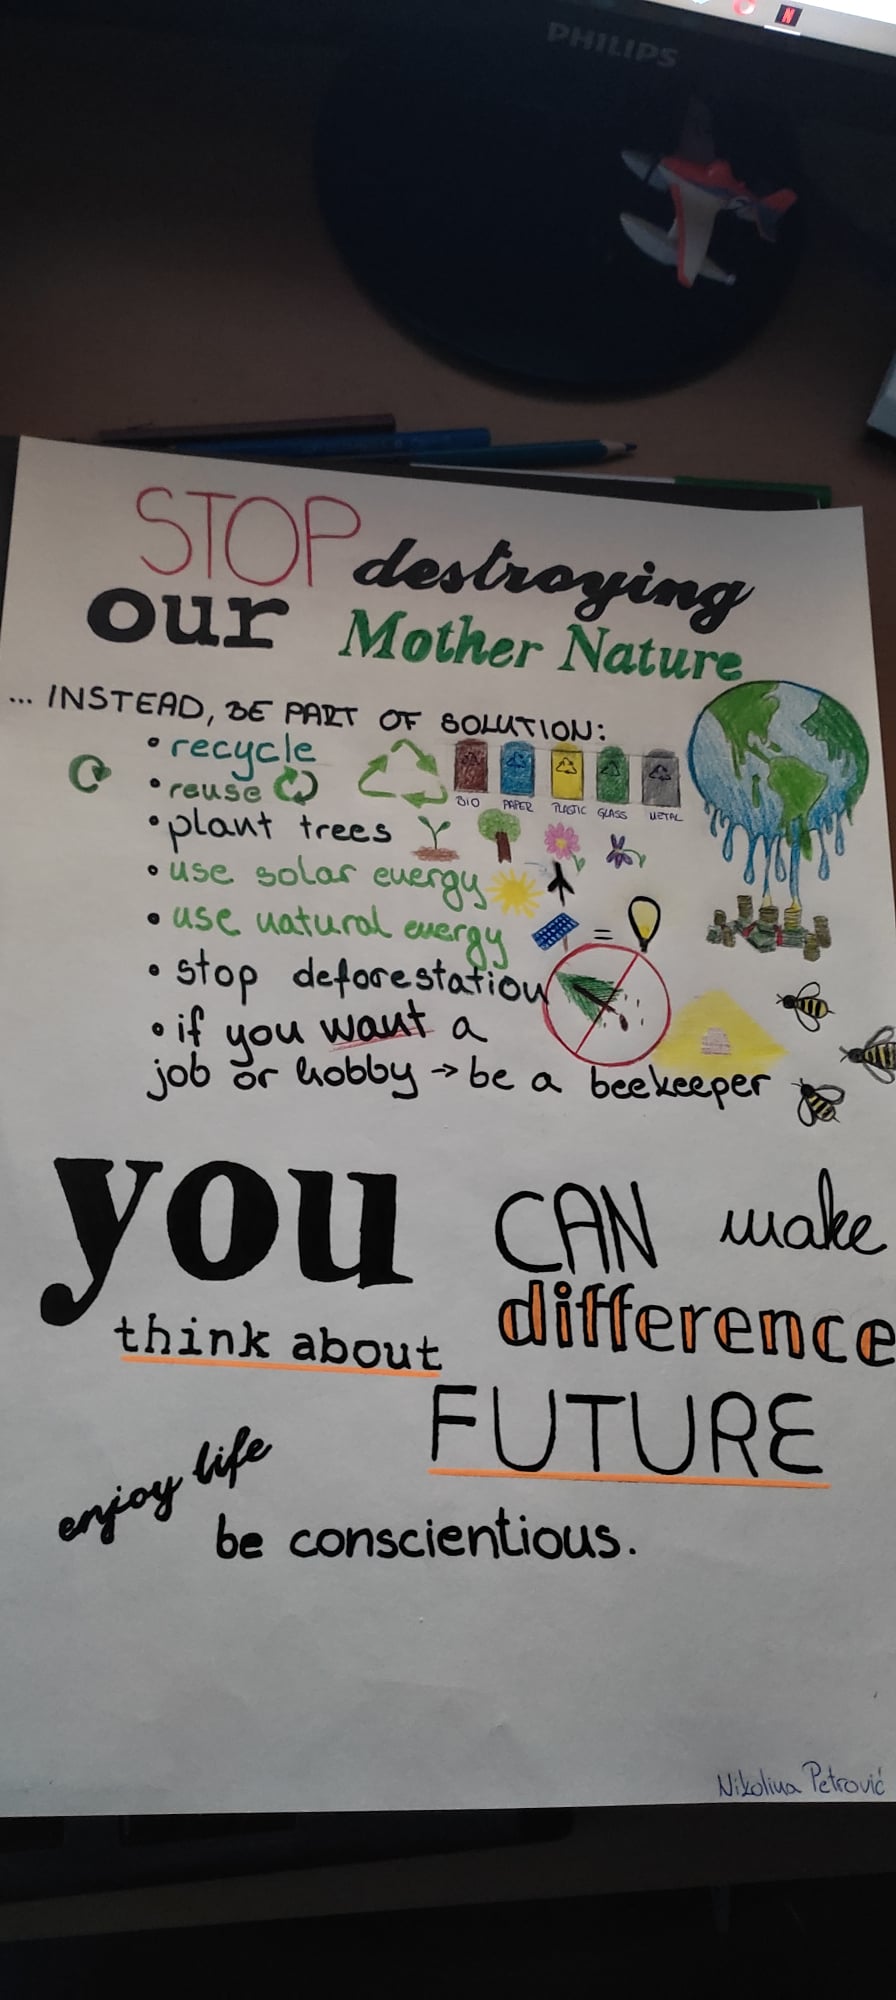 PHILIPS
N
STOP destroying
our Mother Nature
... INSTEAD, BE PART OF SOLUTION:
• recycle
• reuse
BIO PAPER PLASTIC GLASS METAL
• plant trees
• use solar energy
• use natural energy
=
• stop deforestation
• if you want a
job or hobby → be a beekeeper
you CAN make
difference
think about
FUTURE
enjoy life
be conscientious.
Nikolina Petrović